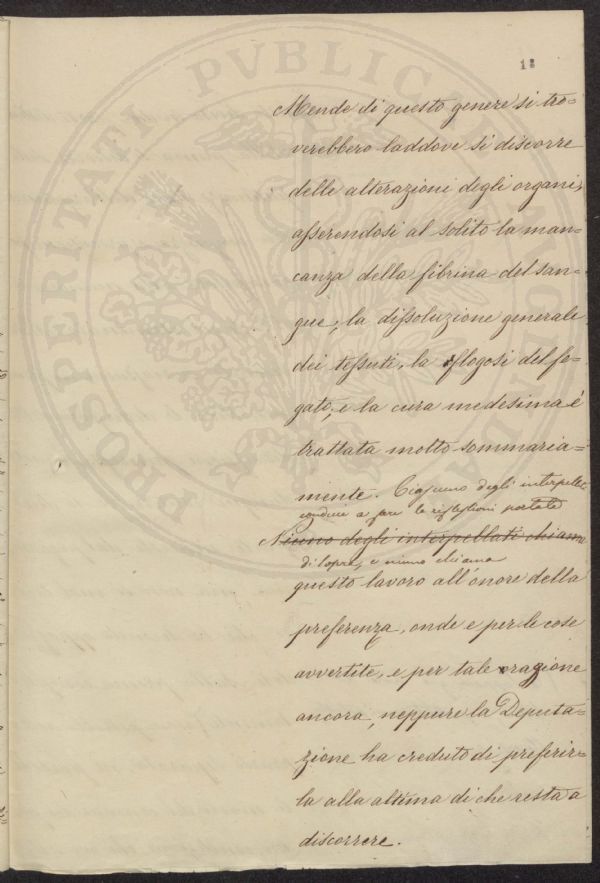 12
Mende di questo genere si tro=
verebbero laddove si discorre
delle alterazioni degli organi,
asserendosi al solito la man=
canza della fibrina del san=
gue, la dissoluzione generale
dei tessuti, la flogosi del fe=
gato, e la cura medesima è
trattata molto sommaria=
mente. Ciascuno degli interpellati
conduce a fare le riflessioni notate
Niuno degli interpellati chiama
di sopra, e niuno chiama
questo lavoro all'onore della
preferenza, onde e per le cose
avvertite, e per tale ragione
ancora, neppure la Deputa=
zione ha creduto di preferir=
la alla altima di che resta a
discorrere.
PROSPERITATI PVBLICAE